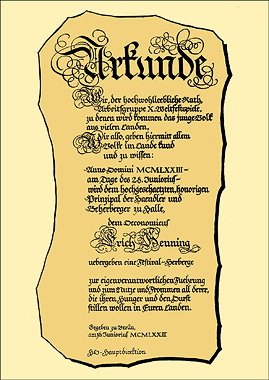 Urkunde
Wir, der hochwohlloebliche Rath,
Arbeitsgruppe X. Weltfestspiele,
zu denen wird kommen das junge Volk
aus vielen Landen,
Wir also, geben hiermit allem
Volke im Lande kund
und zu wissen:
-Anno Domini MCMLXXIII-
am Tage des 28. Juniorius-
wird dem hochgeschaetzten, honorigen
Prinzipal der Haendler und
Beherberger zu Halle,
dem Oeconomicus
Erich Henning
uebergeben eine Festival-Herberge
zur eigenverantwortlichen Fuehrung
und zum Nutze und Frommen all derer,
die ihren Hunger und den Durst
stillen wollen in Euren Landen.
Gegeben zu Berlin,
am 28. Juniorius MCMLXXIII
HO-Hauptdirektion